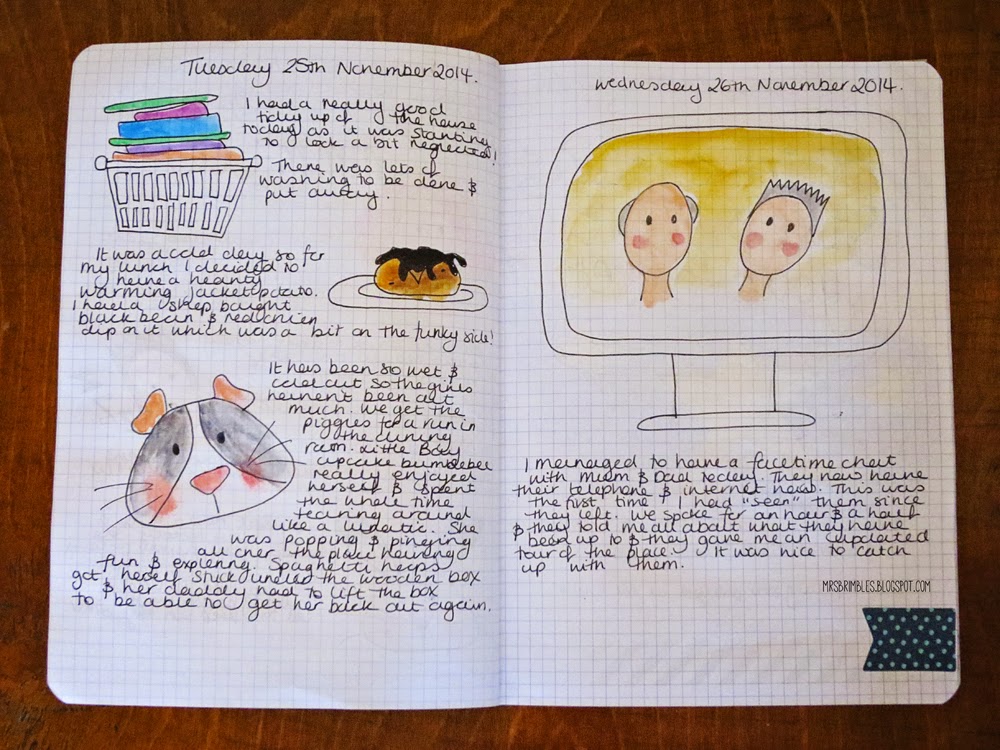 Tuesday 25th November 2014.
I had a really good
tidy up of the house
today as it was starting
to look a bit neglected!
There was lots of
washing to be done &
put away.
It was a cold day so for
my lunch I decided to
have a hearty
warming jacket potato.
I had a shop bought
black bean & red onion
dip on it which was a bit on the funky side!
It has been so wet &
cold out so the girls
haven't been out
much. We get the
piggies for a run in
the dining
room. Little Baby
cupcake bumblebee
really enjoyed
herself & spent
the whole time
tearing around
like a lunatic. She
was popping & pinging
all over the place having
fun & exploring. Spaghetti hoops
got herself stuck under the wooden box
& her daddy had to lift the box
to be able to get her back out again.
Wednesday 26th November 2014.
I managed to have a facetime chat
with mum & Dad today. They now have
their telephone & internet now. This was
the first time I had "seen" them since
they left. We spoke for an hour & a half
& they told me all about what they have
been up to & they gave me an updated
tour of the place. It was nice to catch
up with them.
MRSBRIMBLES.BLOGSPOT.COM